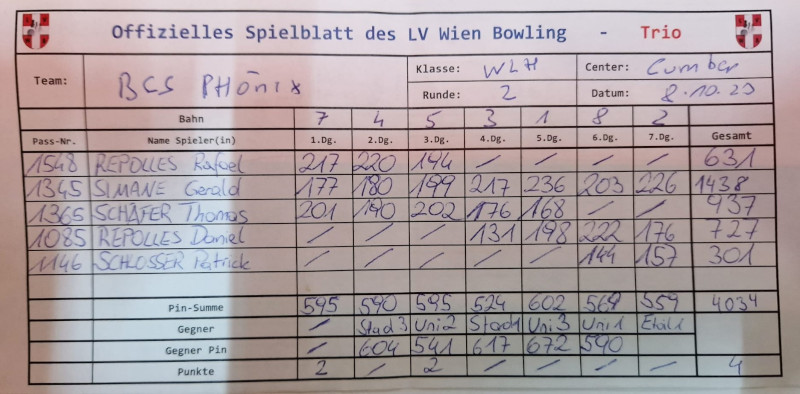 Offizielles Spielblatt des LV Wien Bowling - Trio
Team: BCS PHÖNIX Klasse: WLH Center: Cumber
Runde: 2 Datum: 8.10.23
Bahn 7 4 5 3 1 8 2
Pass-Nr. Name Spieler(in) 1.Dg. 2.Dg. 3.Dg. 4.Dg. 5.Dg. 6.Dg. 7.Dg. Gesamt
1548 REPOLLES Rafael 217 220 194 / / / / 631
1345 SIMANE Gerald 177 180 199 217 236 203 226 1438
1365 SCHÄFER Thomas 201 190 202 176 168 / / 937
1085 REPOLLES Daniel / / / 131 198 222 176 727
1146 SCHLOSSER Patrick / / / / / 144 157 301
Pin-Summe 595 590 595 524 602 569 559 4034
Gegner / Stad 3 Uni 2 Stad 1 Uni 3 Uni 1
Gegner Pin / 604 541 617 672 590
Punkte 2 / 2 / / / / 4